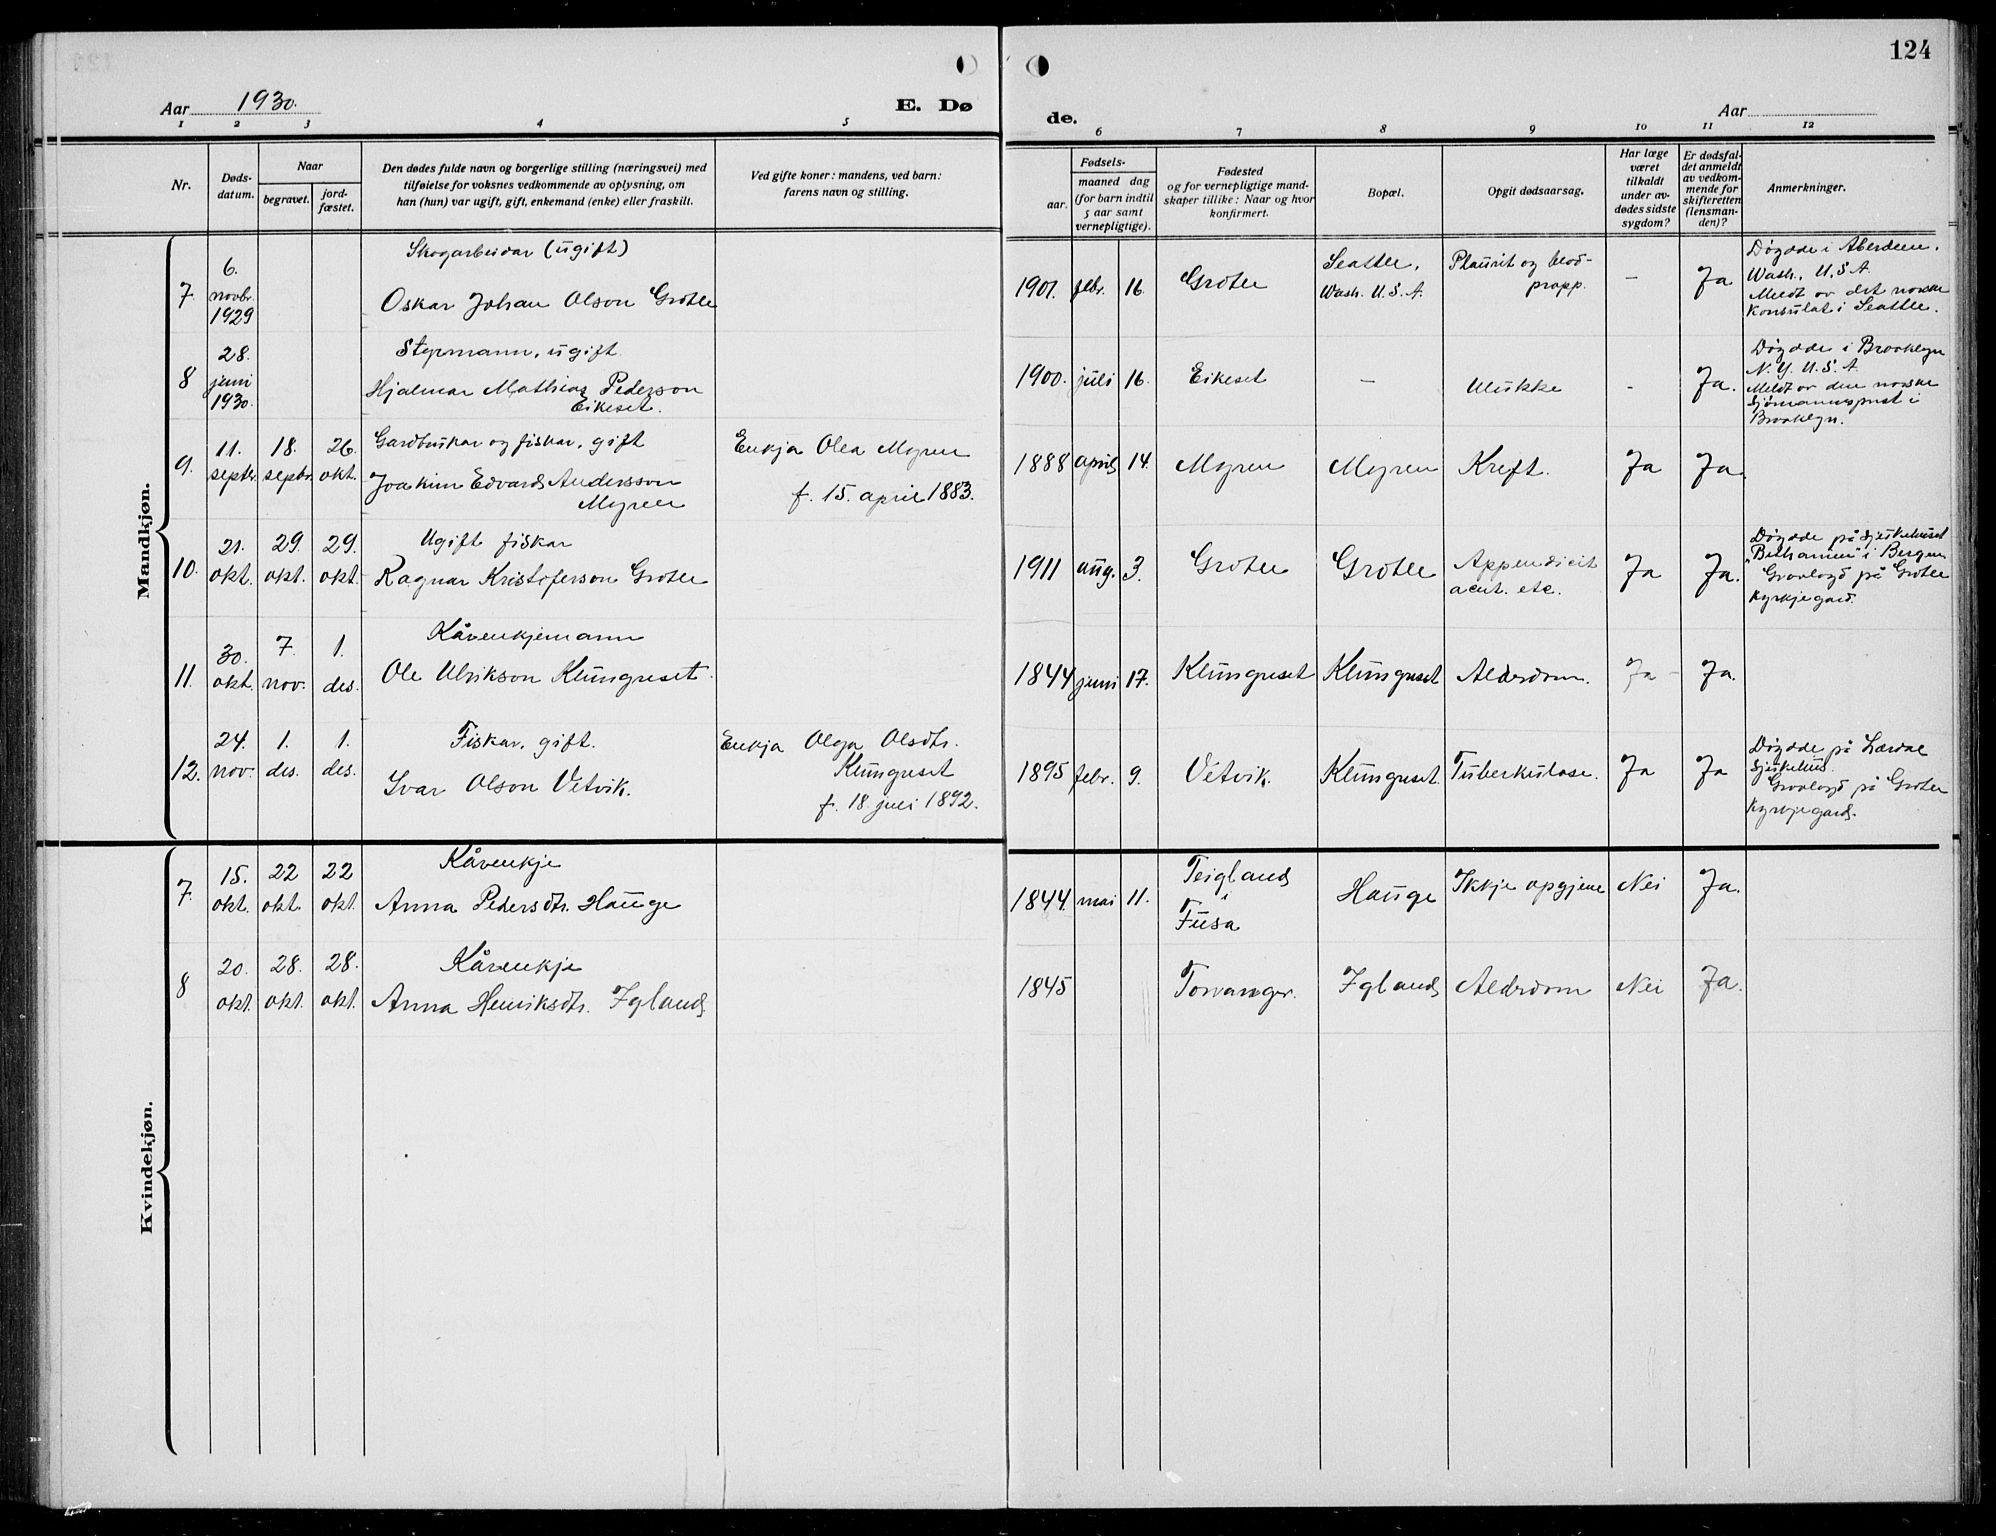 124
Aar 1930.
E. Dø
de.
Aar
1 2 3 4 5 6 7 8 9 10 11 12
Nr.
Døds-
datum.
Naar
begravet.
jord-
fæstet.
Den dødes fulde navn og borgerlige stilling (næringsvei) med
tilføielse for voksnes vedkommende av oplysning, om
han (hun) var ugift, gift, enkemand (enke) eller fraskilt.
Ved gifte koner: mandens, ved barn:
farens navn og stilling.
Fødsels-
aar.
maaned dag
(for barn indtil
5 aar samt
vernepligtige).
Fødested
og for vernepligtige mand-
skaper tillike: Naar og hvor
konfirmert.
Bopæl.
Opgit dødsaarsag.
Har læge
været
tilkaldt
under av-
dødes sidste
sygdom?
Er dødsfal-
det anmeldt
av vedkom-
mende for
skifteretten
(lensman-
den)?
Anmerkninger.
Mandkjøn.
7.
6.
novbr.
1929
Skogarbeidar (ugift)
Oskar Johan Olson Grotle
1901. febr. 16.
Grotle
Seattle,
Wash. U.S.A.
Plaurit og blod-
propp.
-
Ja
Døydde i Aberdeen.
Wash. U.S.A.
Meldt av det norske
konsulat i Seattle.
8
28.
juni
1930.
Styrmann, ugift.
Hjalmar Mathias Pederson
Eikeset.
1900. juli 16.
Eikeset
-
Ulukke
-
Ja.
Døydde i Brooklyn
N.Y. U.S.A.
Meldt av den norske
sjømannsprest i
Brooklyn.
9.
11.
septr.
18.
septr.
26.
okt.
Gardbrukar og fiskar, gift
Joakim Edvard Andersson
Myren
Enkja Olea Myren
f. 15. april 1883.
1888 april 14.
Myren
Myren
Kreft.
Ja
Ja.
10.
21.
okt.
29.
okt.
29.
okt.
Ugift fiskar
Ragnar Kristoferson Grotle
1911 aug. 3.
Grotle
Grotle
Appendicit
acut. etc.
Ja
Ja.
Døydde på sjukehuset
"Bethanien" i Bergen
Gravlagd på Grotle
kyrkjegard.
11.
30.
okt.
7.
nov.
1.
des.
Kårenkjemann
Ole Ulrikson Klungreset.
1844 juni 17.
Klungreset
Klungreset
Alderdom.
Ja -
Ja.
12.
24.
nov.
1.
des.
1.
des.
Fiskar, gift.
Ivar Olson Vetvik.
Enkja Olga Olsdtr.
Klungreset
f. 18. juli 1892.
1895 febr. 9.
Vetvik.
Klungreset.
Tuberkulose.
Ja
Ja
Døydde på Lærdal
sjukehus.
Gravlagd på Grotle
kyrkjegard.
Kvindekjøn.
7.
15.
okt.
22
okt.
22
okt.
Kårenkje
Anna Pedersdtr. Hauge
1844. mai 11.
Teigland
i
Fusa
Hauge
Ikkje opgjeve
Nei
Ja.
8
20.
okt.
28.
okt.
28.
okt.
Kårenkje
Anna Henriksdtr. Igland.
1845
Torvanger.
Igland
Alderdom
Nei
Ja.